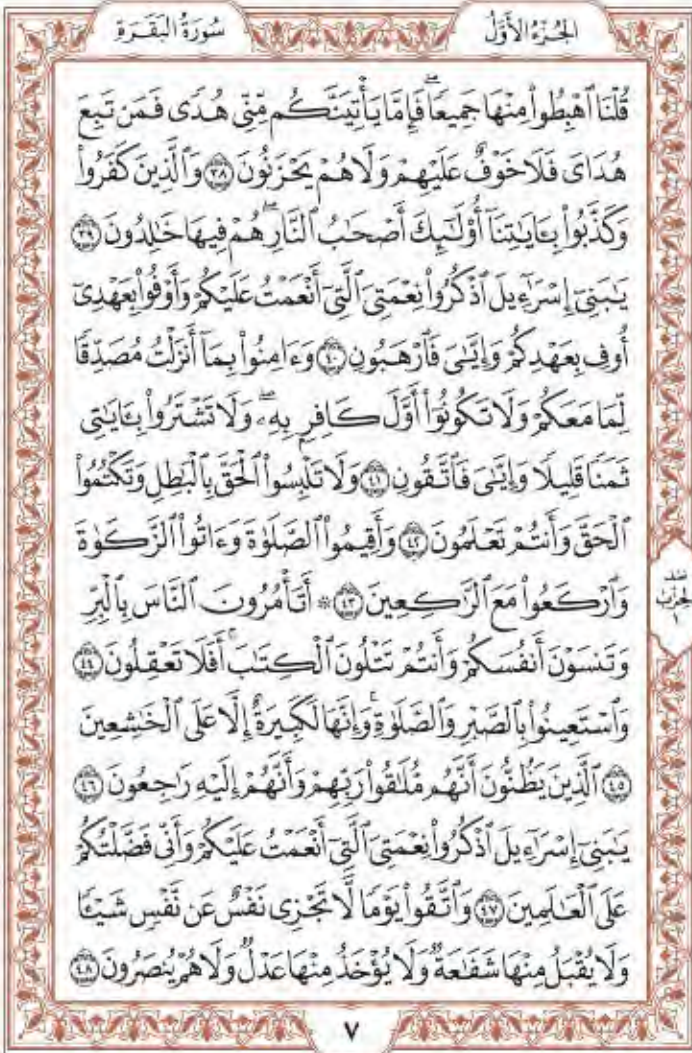 الجُزْءُ الأَوَّلُ
سُورَةُ البَقَرَةِ
قُلْنَا ٱهْبِطُوا۟ مِنْهَا جَمِيعًاۖ فَإِمَّا يَأْتِيَنَّكُم مِّنِّى هُدًى فَمَن تَبِعَ
هُدَاىَ فَلَا خَوْفٌ عَلَيْهِمْ وَلَا هُمْ يَحْزَنُونَ ٣٨ وَٱلَّذِينَ كَفَرُوا۟
وَكَذَّبُوا۟ بِـَٔايَـٰتِنَآ أُو۟لَـٰٓئِكَ أَصْحَـٰبُ ٱلنَّارِۖ هُمْ فِيهَا خَـٰلِدُونَ ٣٩
يَـٰبَنِىٓ إِسْرَٰٓءِيلَ ٱذْكُرُوا۟ نِعْمَتِىَ ٱلَّتِىٓ أَنْعَمْتُ عَلَيْكُمْ وَأَوْفُوا۟ بِعَهْدِىٓ
أُوفِ بِعَهْدِكُمْ وَإِيَّـٰىَ فَٱرْهَبُونِ ٤٠ وَءَامِنُوا۟ بِمَآ أَنزَلْتُ مُصَدِّقًا
لِّمَا مَعَكُمْ وَلَا تَكُونُوٓا۟ أَوَّلَ كَافِرٍۭ بِهِۦۖ وَلَا تَشْتَرُوا۟ بِـَٔايَـٰتِى
ثَمَنًا قَلِيلًا وَإِيَّـٰىَ فَٱتَّقُونِ ٤١ وَلَا تَلْبِسُوا۟ ٱلْحَقَّ بِٱلْبَـٰطِلِ وَتَكْتُمُوا۟
ٱلْحَقَّ وَأَنتُمْ تَعْلَمُونَ ٤٢ وَأَقِيمُوا۟ ٱلصَّلَوٰةَ وَءَاتُوا۟ ٱلزَّكَوٰةَ
وَٱرْكَعُوا۟ مَعَ ٱلرَّٰكِعِينَ ٤٣ ۞ أَتَأْمُرُونَ ٱلنَّاسَ بِٱلْبِرِّ
وَتَنسَوْنَ أَنفُسَكُمْ وَأَنتُمْ تَتْلُونَ ٱلْكِتَـٰبَۚ أَفَلَا تَعْقِلُونَ ٤٤
وَٱسْتَعِينُوا۟ بِٱلصَّبْرِ وَٱلصَّلَوٰةِۚ وَإِنَّهَا لَكَبِيرَةٌ إِلَّا عَلَى ٱلْخَـٰشِعِينَ
٤٥ ٱلَّذِينَ يَظُنُّونَ أَنَّهُم مُّلَـٰقُوا۟ رَبِّهِمْ وَأَنَّهُمْ إِلَيْهِ رَٰجِعُونَ ٤٦
يَـٰبَنِىٓ إِسْرَٰٓءِيلَ ٱذْكُرُوا۟ نِعْمَتِىَ ٱلَّتِىٓ أَنْعَمْتُ عَلَيْكُمْ وَأَنِّى فَضَّلْتُكُمْ
عَلَى ٱلْعَـٰلَمِينَ ٤٧ وَٱتَّقُوا۟ يَوْمًا لَّا تَجْزِى نَفْسٌ عَن نَّفْسٍ شَيْـًٔا
وَلَا يُقْبَلُ مِنْهَا شَفَـٰعَةٌ وَلَا يُؤْخَذُ مِنْهَا عَدْلٌ وَلَا هُمْ يُنصَرُونَ ٤٨
٧